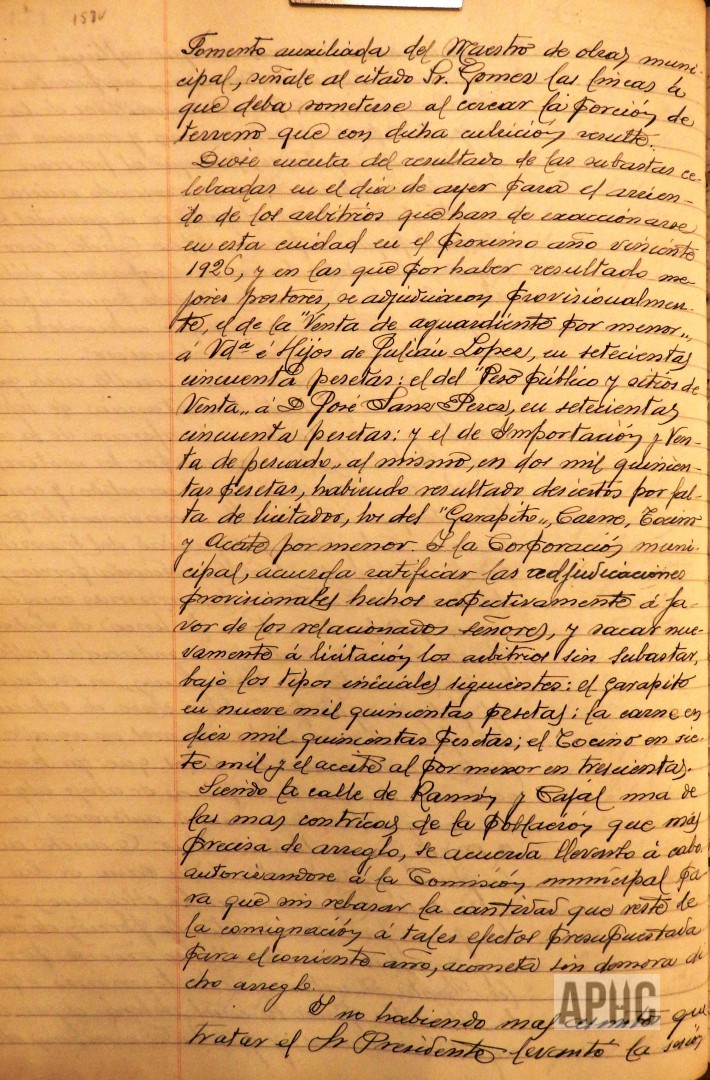 Fomento auxiliada del Maestro de obras muni-
cipal, señale al citado Sr. Gomez las lineas á
que deba someterse al cercar la porción de
terreno que con dicha resulte.
Diose cuenta del resultado de las subastas ce-
lebradas en el dia de ayer para el arrien-
do de los arbitrios que han de exaccionarse
en esta ciudad en el proximo año viniente
1926, y en las que por haber resultado me-
jores postores, se adjudicaron provisionalmen-
te, el de la "Venta de aguardiente por menor,,
á Vdª é Hijos de Julián Lopez, en setecientas
cincuenta pesetas: el del "Peso público y sitios de
Venta,, á D José Sanz Perez, en setecientas
cincuenta pesetas: y el de Importación y Ven-
ta de pescado, al mismo, en dos mil quinien-
tas pesetas, habiendo resultado desiertos por fal-
ta de licitador, los del "Garapito,, Carne, Tocino
y Aceite por menor. Y la Corporación muni-
cipal, acuerda ratificar las adjudicaciones
provisionales hechas respectivamente á fa-
vor de los relacionados señores, y sacar nue-
vamente á licitación los arbitrios sin subastar,
bajo los tipos iniciales siguientes: el Garapito
en nueve mil quinientas pesetas; la carne en
diez mil quinientas pesetas; el Tocino en sie-
te mil, y el aceite al por menor en trescientas.
Siendo la calle de Ramón y Cajal una de
las mas centricas de la población que más
precisa de arreglo, se acuerda llevarlo á cabo
autorizandose á la Comisión municipal pa-
ra que sin rebasar la cantidad que reste de
la consignación á tales efectos presupuestada
para el corriente año, acometa sin demora di-
cho arreglo.
Y no habiendo mas asuntos que
tratar el Sr Presidente levantó la sesión
APHG